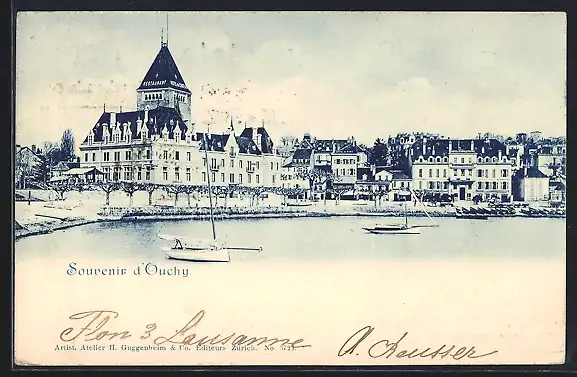 RESTAURANT
Souvenir d'Ouchy.
Flon 3 Lausanne
A. Krausser
Artist. Atelier H. Guggenheim & Co. Editeurs Zürich. No